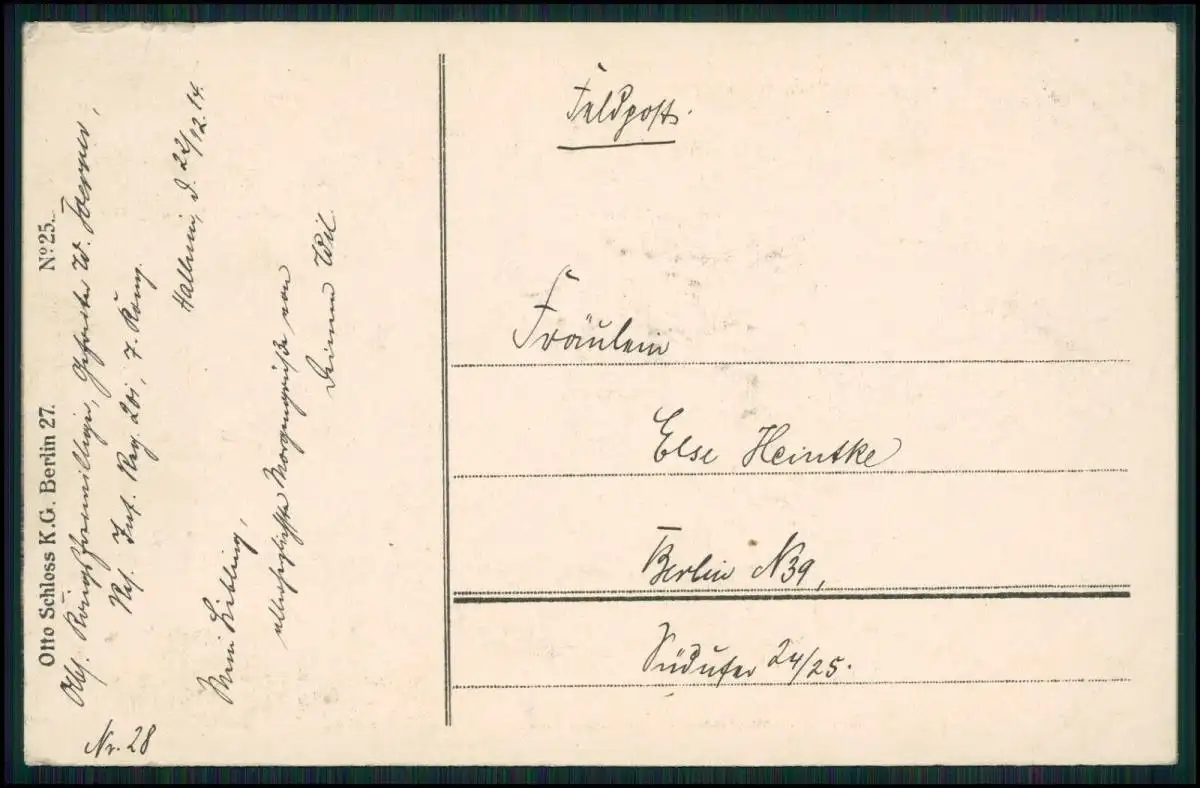 Otto Schloss K.G. Berlin 27. No 25.
Abs. Kriegsfreiwilliger, Gefreiter W.
Res. Inf. Reg. 201, 7. Komp.
Halluin, d. 22/12.14.
Mein Liebling,
allerherzlichste Morgengrüße von
Deinem Wil.
Nr. 28
Feldpost.
Fräulein
Else Heintke
Berlin N39,
Südufer 24/25.